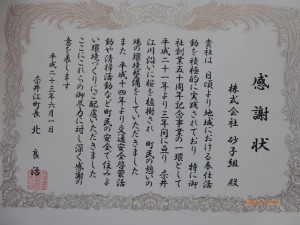 感謝状
株式会社 砂子組 殿
貴社は 日頃より地域における奉仕活
動を積極的に実践されており 特に御
社創業五十周年記念事業の一環として
平成二十一年より三年間に亘り 奈井
江川沿いに桜を植樹され 町民の憩いの
場の環境整備をしていただきました
また 平成十四年より交通安全啓蒙活
動や清掃活動など町民の安全で住みよ
い環境づくりにご配慮いただきました
ここにこれらの御尽力に対し深く感謝の
意を表します
平成二十三年六月一日
奈井江町長 北 良治